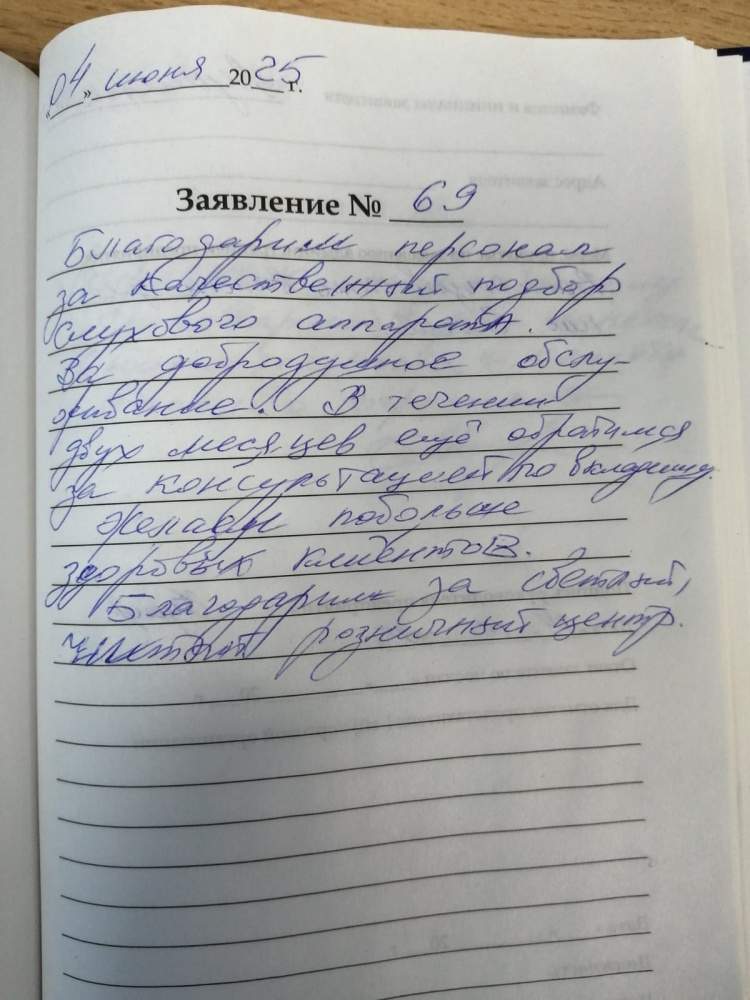 «04» июня 2025 г.
Заявление № 69
Благодарим персонал
за качественный подбор
слухового аппарата.
За добродушное обслу-
живание. В течении
двух месяцев ещё обратимся
за консультацией по вкладышу.
Желаем побольше
здоровых клиентов.
Благодарим за светлый,
чистый розничный центр.